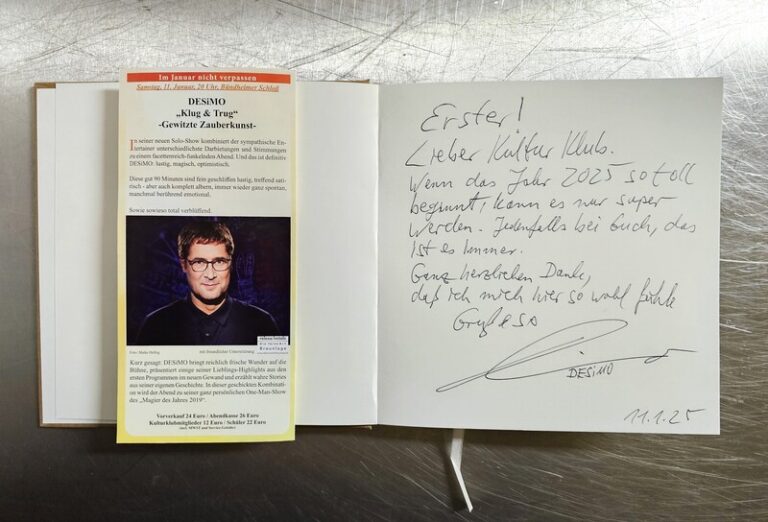 Im Januar nicht verpassen
Samstag, 11. Januar, 20 Uhr, Bündheimer Schloß
DESiMO
„Klug & Trug“
-Gewitzte Zauberkunst-
In seiner neuen Solo-Show kombiniert der sympathische En-
tertainer unterschiedlichste Darbietungen und Stimmungen
zu einem facettenreich-funkelnden Abend. Und das ist definitiv
DESiMO: lustig, magisch, optimistisch.
Diese gut 90 Minuten sind fein geschliffen lustig, treffend sati-
risch - aber auch komplett albern, immer wieder ganz spontan,
manchmal berührend emotional.
Sowie sowieso total verblüffend:
Braunlage
Foto: Maike Helbig
mit freundlicher Unterstützung
Kurz gesagt: DESiMO bringt reichlich frische Wunder auf die
Bühne, präsentiert einige seiner Lieblings-Highlights aus den
ersten Programmen im neuen Gewand und erzählt wahre Stories
aus seiner eigenen Geschichte. In dieser geschickten Kombinati-
on wird der Abend zu seiner ganz persönlichen One-Man-Show
des „Magier des Jahres 2019“.
Vorverkauf 24 Euro / Abendkasse 26 Euro
Kulturklubmitglieder 12 Euro / Schüler 22 Euro
(inkl. MWST und Service-Gebühr)
Erster!
Lieber Kultur Klub.
Wenn das Jahr 2025 so toll
beginnt, kann es nur super
werden. Jedenfalls bei Euch, das
ist es immer.
Ganz herzlichen Dank,
daß ich mich hier so wohl fühle
DESiMO
11.1.25